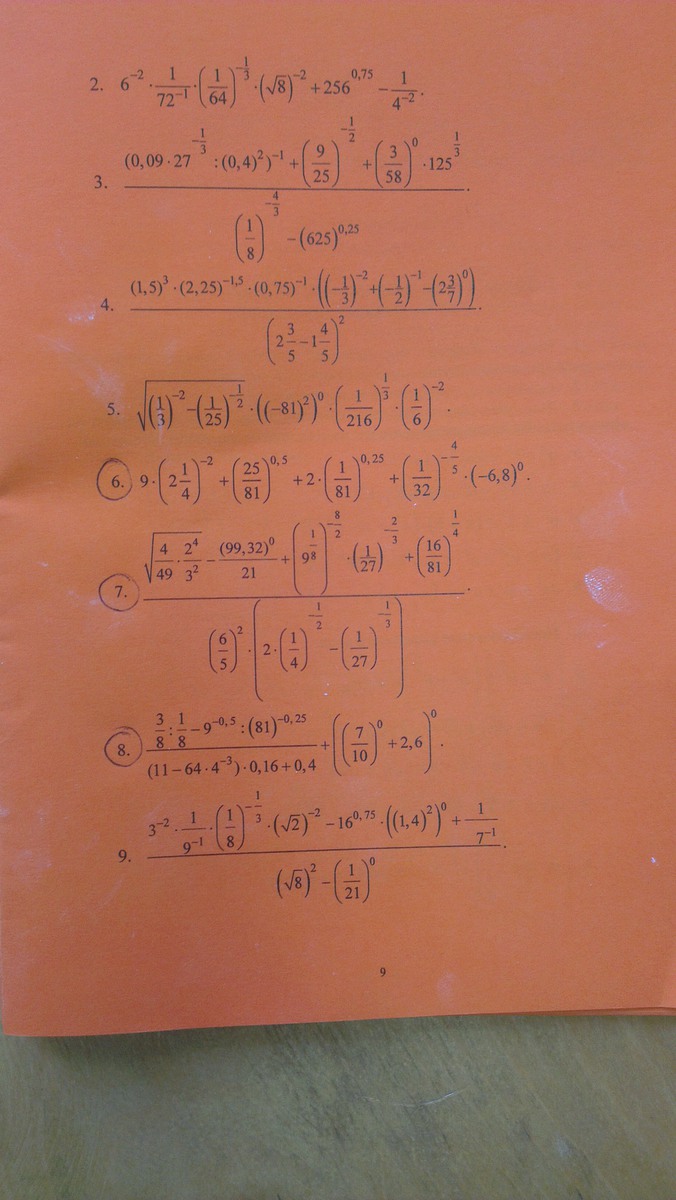 2. 6^{-2} · \frac{1}{72^{-1}} · \left(\frac{1}{64}\right)^{-\frac{1}{3}} · (\sqrt{8})^{-2} + 256^{0,75} - \frac{1}{4^{-2}}.
3. \frac{(0,09 · 27^{-\frac{1}{3}} : (0,4)^2)^{-1} + \left(\frac{9}{25}\right)^{-\frac{1}{2}} + \left(\frac{3}{58}\right)^0 · 125^{\frac{1}{3}}}{\left(\frac{1}{8}\right)^{-\frac{4}{3}} - (625)^{0,25}}.
4. \frac{(1,5)^3 · (2,25)^{-1,5} · (0,75)^{-1} · \left(\left(-\frac{1}{3}\right)^{-2} + \left(-\frac{1}{2}\right)^{-1} - \left(2\frac{3}{7}\right)^0\right)}{\left(2\frac{3}{5} - 1\frac{4}{5}\right)^2}.
5. \sqrt{\left(\frac{1}{3}\right)^{-2} - \left(\frac{1}{25}\right)^{-\frac{1}{2}}} · ((-81)^2)^0 · \left(\frac{1}{216}\right)^{\frac{1}{3}} · \left(\frac{1}{6}\right)^{-2}.
6. 9 · \left(2\frac{1}{4}\right)^{-2} + \left(\frac{25}{81}\right)^{0,5} + 2 · \left(\frac{1}{81}\right)^{0,25} + \left(\frac{1}{32}\right)^{-\frac{4}{5}} · (-6,8)^0.
7. \frac{\sqrt{\frac{4}{49} · \frac{2^4}{3^2}} - \frac{(99,32)^0}{21} + \left(9^{\frac{1}{8}}\right)^{-\frac{8}{2}} · \left(\frac{1}{27}\right)^{-\frac{2}{3}} + \left(\frac{16}{81}\right)^{\frac{1}{4}}}{\left(\frac{6}{5}\right)^2 · \left(2 · \left(\frac{1}{4}\right)^{-\frac{1}{2}} - \left(\frac{1}{27}\right)^{-\frac{1}{3}}\right)}.
8. \frac{\frac{3}{8} : \frac{1}{8} - 9^{-0,5} : (81)^{-0,25}}{(11 - 64 · 4^{-3}) · 0,16 + 0,4} + \left(\left(\frac{7}{10}\right)^0 + 2,6\right)^0.
9. \frac{3^{-2} · \frac{1}{9^{-1}} · \left(\frac{1}{8}\right)^{-\frac{1}{3}} · (\sqrt{2})^{-2} - 16^{0,75} · ((1,4)^2)^0 + \frac{1}{7^{-1}}}{(\sqrt{8})^2 - \left(\frac{1}{21}\right)^0}.
9